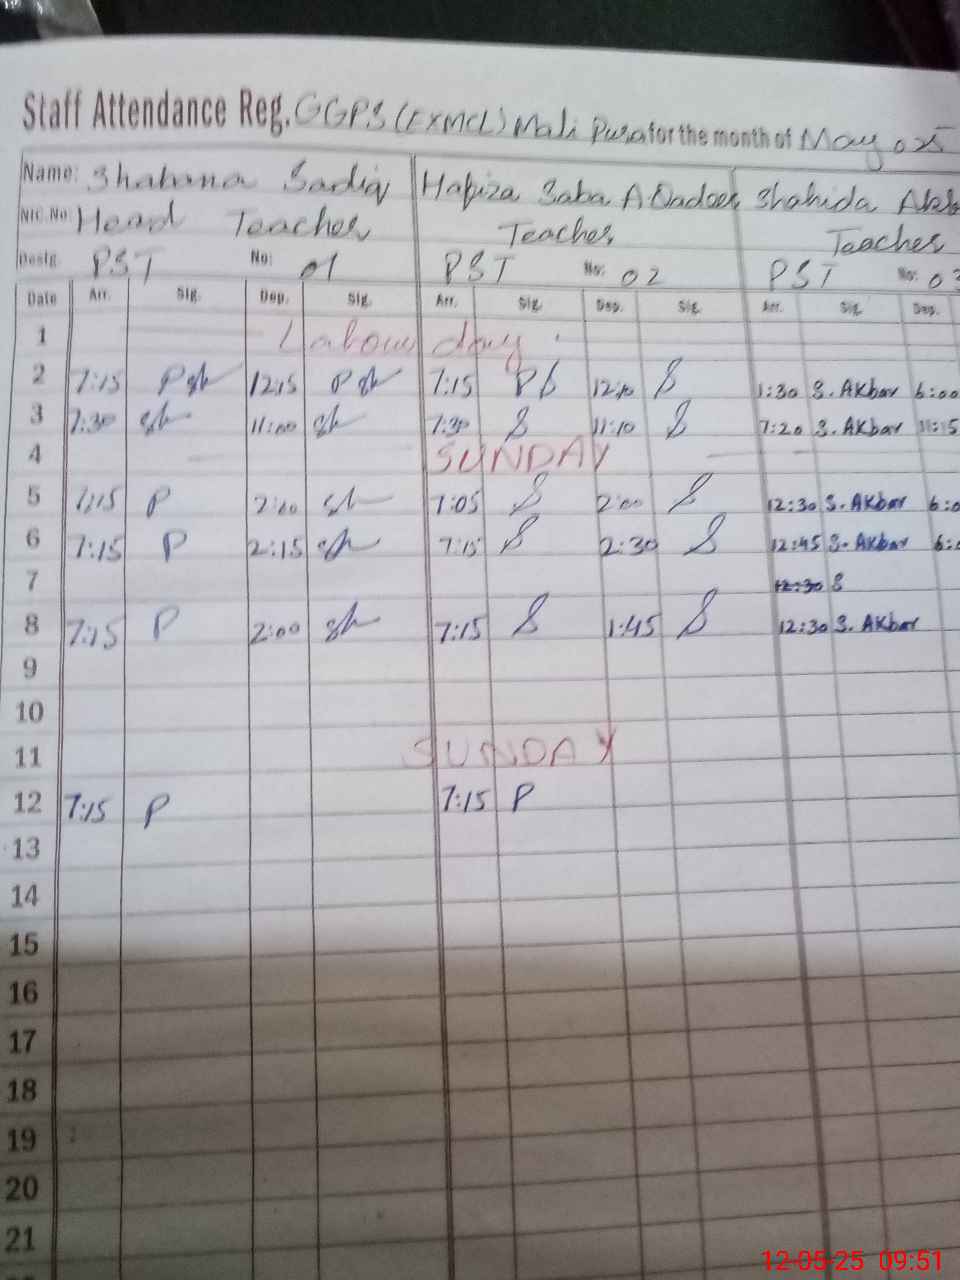 Staff Attendance Reg. GGPS (EXMCL) Mali Pura for the month of May 025
Name: Shabana Sadiq Hafiza Saba A Qadeer Shahida Akb
NIC.No: Head Teacher Teacher Teacher
Desig. PST No: 01 PST No: 02 PST No: 03
Date Arr. Sig. Dep. Sig. Arr. Sig. Dep. Sig. Arr. Sig. Dep.
1 Labour day
2 7:15 P sh 12:15 P sh 7:15 P S 12:10 S 1:30 S. Akbar 6:00
3 7:30 sh 11:00 sh 7:30 S 11:10 S 7:20 S. Akbar 11:15
4 SUNDAY
5 7:15 P 2:10 sh 7:05 S 2:00 S 12:30 S. Akbar 6:0
6 7:15 P 2:15 sh 7:15 S 2:30 S 12:45 S. Akbar 6:
7 12:30 S
8 7:15 P 2:00 sh 7:15 S 1:45 S 12:30 S. Akbar
9
10
11 SUNDAY
12 7:15 P 7:15 P
13
14
15
16
17
18
19
20
21
12-05-25 09:51